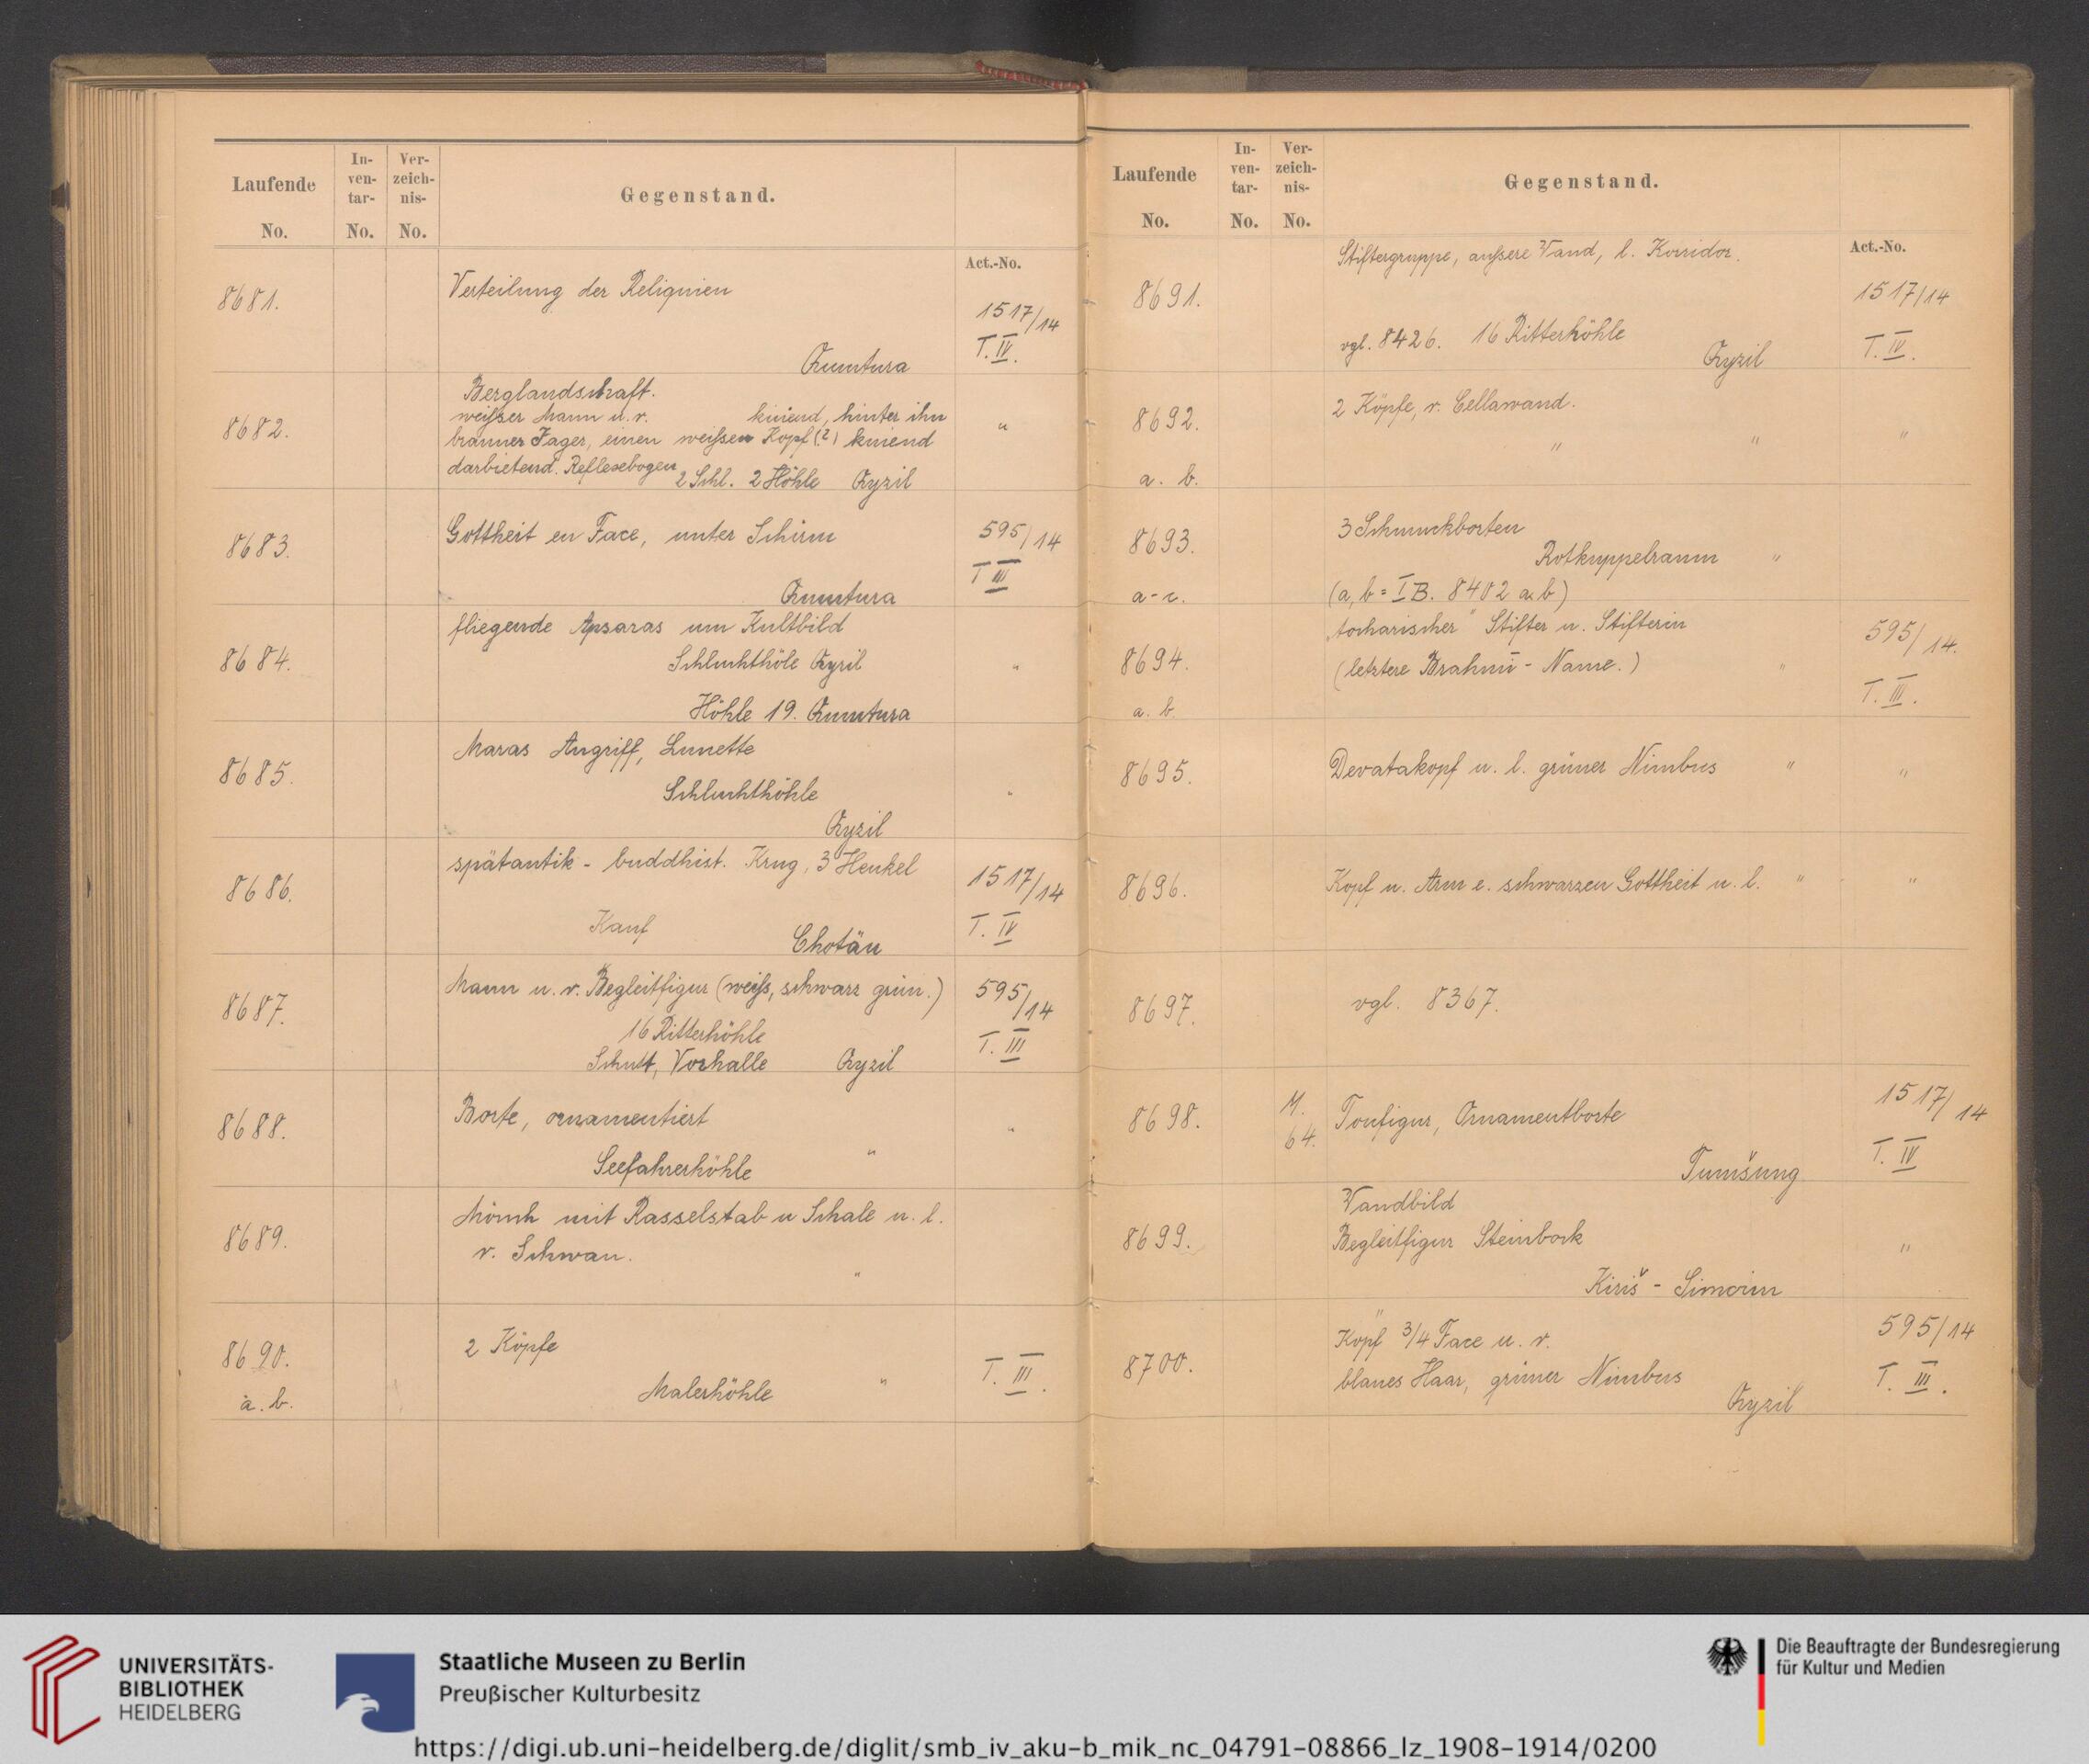 Laufende
No.
In-
ven-
tar-
No.
Ver-
zeich-
nis-
No.
Gegenstand.
Act.-No.
8681.
Verteilung der Reliquien
1517/14
T. IV.
Qumtura
8682.
Berglandschaft.
weißer Mann u. r. kniend, hinter ihm
brauner Jager, einen weißen Kopf (?) kniend
darbietend. Reflexbogen
2 Schl. 2 Höhle Qyzil
"
8683.
Gottheit en Face, unter Schirm
595/14
T III
Qumtura
8684.
fliegende Apsaras um Kultbild
Schluchthöle Qyzil
"
Höhle 19. Qumtura
8685.
Maras Angriff, Lunette
Schluchthöhle
"
Qyzil
8686.
spätantik - buddhist. Krug, 3 Henkel
1517/14
T. IV
Kauf
Chotän
8687.
Mann u. r. Begleitfigur (weiß, schwarz grün.)
595/14
16 Ritterhöhle
T. III
Schutt, Vorhalle Qyzil
8688.
Borte, ornamentiert
"
Seefahrerhöhle "
8689.
Mönch mit Rasselstab u Schale u. l.
r. Schwan.
"
8690.
a. b.
2 Köpfe
Malerhöhle "
T. III.
Laufende
No.
In-
ven-
tar-
No.
Ver-
zeich-
nis-
No.
Gegenstand.
Act.-No.
Stiftergruppe, außere Wand, l. Korridor.
8691.
1517/14
vgl. 8426. 16 Ritterhöhle
Qyzil
T. IV.
8692.
a. b.
2 Köpfe, r. Cellawand.
" " "
8693.
a-c.
3 Schmuckborten
Rotkuppelraum "
(a, b = I B. 8402 a.b)
8694.
a. b
„tocharischer" Stifter u. Stifterin
595/14.
(letztere Brahmī - Name.) "
T. III.
8695.
Devatakopf u. l. grüner Nimbus " "
8696.
Kopf u. Arm e. schwarzen Gottheit u. l. " "
8697.
vgl. 8367.
8698.
M.
64.
Tonfigur, Ornamentborte
1517/14
T. IV
Tumšuug
8699.
Wandbild
Begleitfigur Steinbock
"
Kiriš - Simoim
8700.
"
Kopf 3/4 Face u. r.
595/14
blaues Haar, grüner Nimbus
T. III.
Qyzil
UNIVERSITÄTS-
BIBLIOTHEK
HEIDELBERG
Staatliche Museen zu Berlin
Preußischer Kulturbesitz
Die Beauftragte der Bundesregierung
für Kultur und Medien
https://digi.ub.uni-heidelberg.de/diglit/smb_iv_aku-b_mik_nc_04791-08866_lz_1908-1914/0200